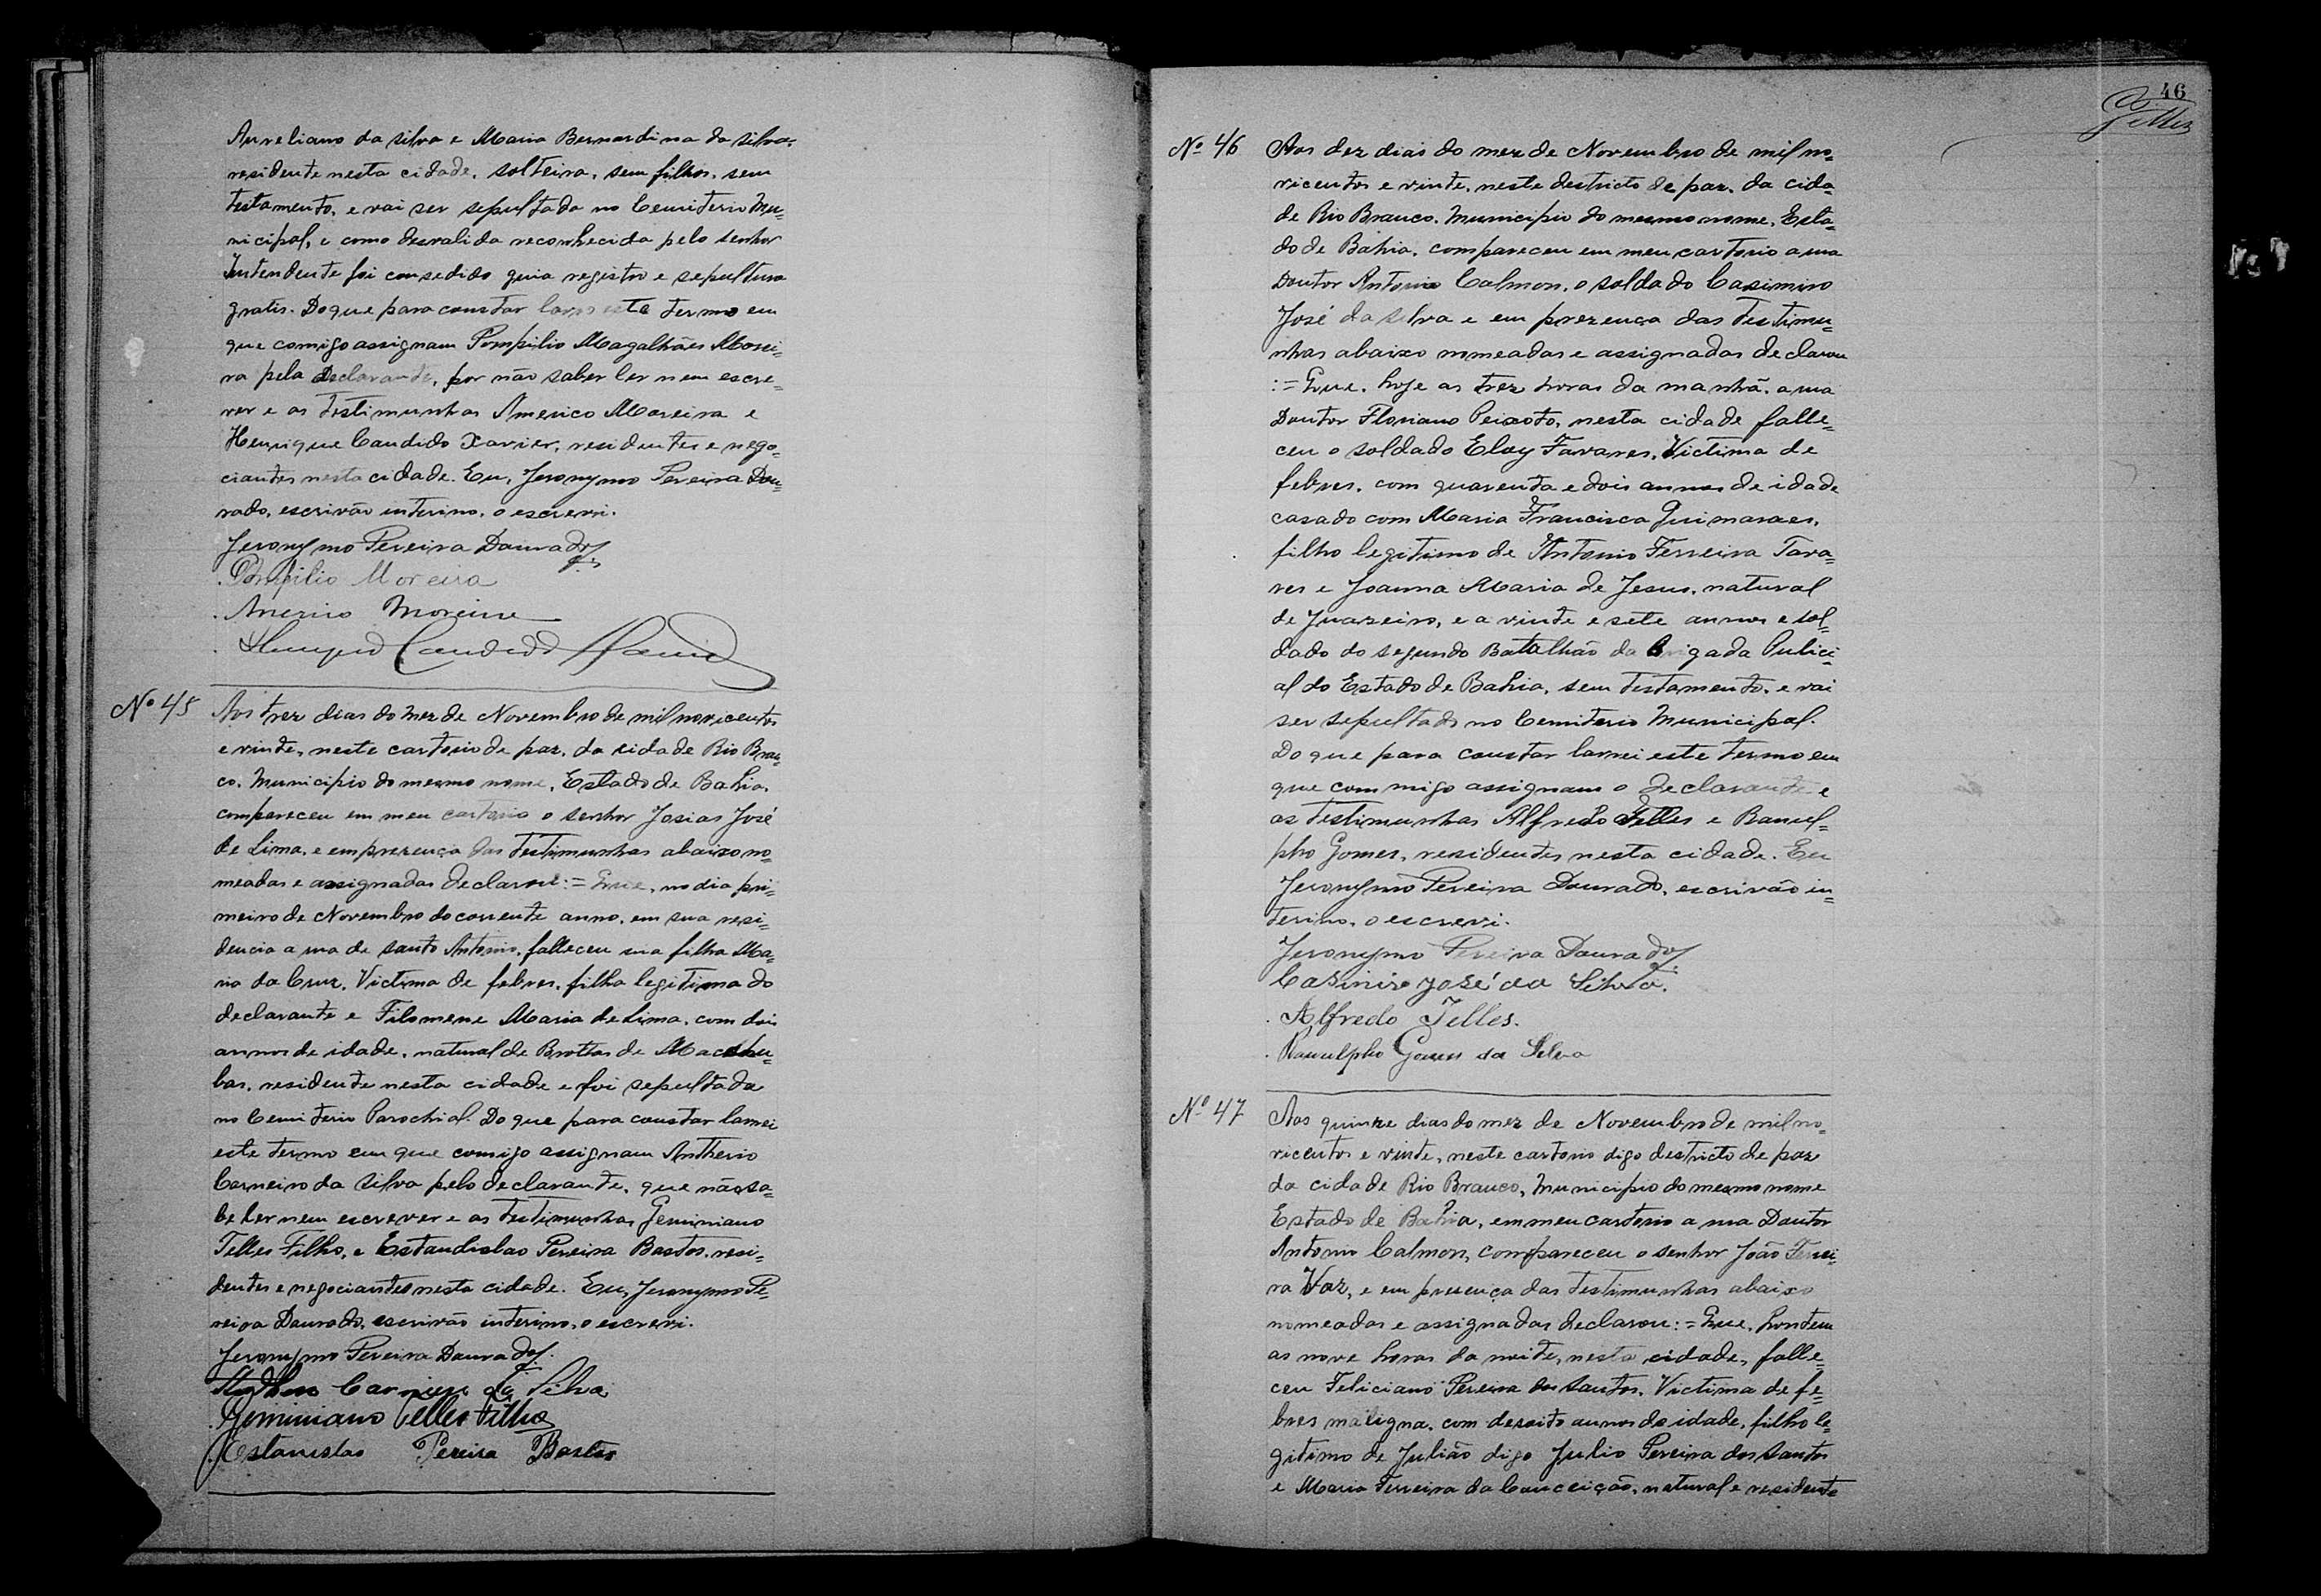 Aureliano da Silva e Maria Bernardina da Silva,
residente nesta cidade, solteira, sem filhos, sem
testamento, e vai ser sepultada no Cemiterio Mu=
nicipal, e como desvalida reconhecida pelo senhor
Intendente foi consedido guia registro e sepultura
gratis. Do que para constar lavro este termo em
que comigo assignam Pompilio Magalhães Morei=
ra pela declarante, por não saber ler nem escre=
ver e as testimunhas Americo Moreira e
Henrique Candido Xavier, residentes e nego=
ciantes nesta cidade. Eu, Jeronymo Pereira Dou=
rado, escrivão interino, o escrevi.
Jeronymo Pereira Dourado
Pompilio Moreira
Americo Moreira
Henrique Candido Xavier
Nº 45 Aos trez dias do mez de Novembro de mil novicentos
e vinte, neste cartorio de paz, da cidade Rio Bran=
co, Municipio do mesmo nome, Estado de Bahia,
compareceu em meu cartorio o senhor Josias José
de Lima, e em prezença das testimunhas abaixo no=
meadas e assignadas declarou:= Que, no dia pri=
meiro de Novembro do corrente anno, em sua resi=
dencia a rua de santo Antonio, falleceu sua filha Ma=
ria da Cruz, Victima de febres, filha legitima do
declarante e Filomene Maria de Lima, com dois
annos de idade, natural de Brottas de Macahu=
bas, residente nesta cidade e foi sepultada
no Cemiterio Parochial. Do que para constar lavrei
este termo em que comigo assignam Antherio
Carneiro da Silva pelo declarante, que não sa=
be ler nem escrever e as testimunhas Geminiano
Telles Filho, e Estandislao Pereira Bastos, resi=
dentes e negociantes nesta cidade. Eu, Jeronymo Pe=
reira Dourado, escrivão interino, o escrevi.
Jeronymo Pereira Dourado
Carneiro da Silva
Geminiano Telles Filho
Estanislao Pereira Bastos
46
Telles
Nº 46 Aos dez dias do mez de Novembro de mil no=
vicentos e vinte, neste destricto de paz, da cida=
de Rio Branco, Municipio do mesmo nome, Esta=
do de Bahia, compareceu em meu cartorio a rua
Doutor Antonio Calmon, o soldado Casimiro
José da Silva e em prezença das testimu=
nhas abaixo nomeadas e assignadas declarou
:= Que, hoje as trez horas da manhã, a rua
Doutor Floriano Peixoto, nesta cidade falle=
ceu o soldado Eloy Tavares, Victima de
febres, com quarenta e dois annos de idade
casado com Maria Francisca Guimaraes,
filho legitimo de Antonio Ferreira Tava=
res e Joanna Maria de Jesus, natural
de Juazeiro, e a vinte e sete annos e sol=
dado do segundo Batalhão da Brigada Pulici=
al do Estado de Bahia, sem testamento, e vai
ser sepultado no Cemiterio Municipal.
Do que para constar lavrei este termo em
que commigo assignam o declarante e
as testimunhas Alfredo Telles e Ranul=
pho Gomes, residentes nesta cidade. Eu
Jeronymo Pereira Dourado, escrivão in=
terino, o escrevi.
Jeronymo Pereira Dourado
Casimiro José da Silva.
Alfredo Telles.
Ranulpho Gomes da Silva
Nº 47 Aos quinze dias do mez de Novembro de mil no=
vicentos e vinte, neste cartorio digo destricto de paz
da cidade Rio Branco, Municipio do mesmo nome
Estado de Bahia, em meu cartorio a rua Doutor
Antonio Calmon, compareceu o senhor João Ferrei=
ra Vaz, e em presença das testimunhas abaixo
nomeadas e assignadas declarou:= Que, hontem
as nove horas da noite, nesta cidade, falle=
ceu Feliciano Pereira dos Santos, Victima de fe=
bres maligna, com dezoito annos de idade, filho le=
gitimo de Julião digo Julio Pereira dos Santos
e Maria Ferreira da Conceição, natural e residente